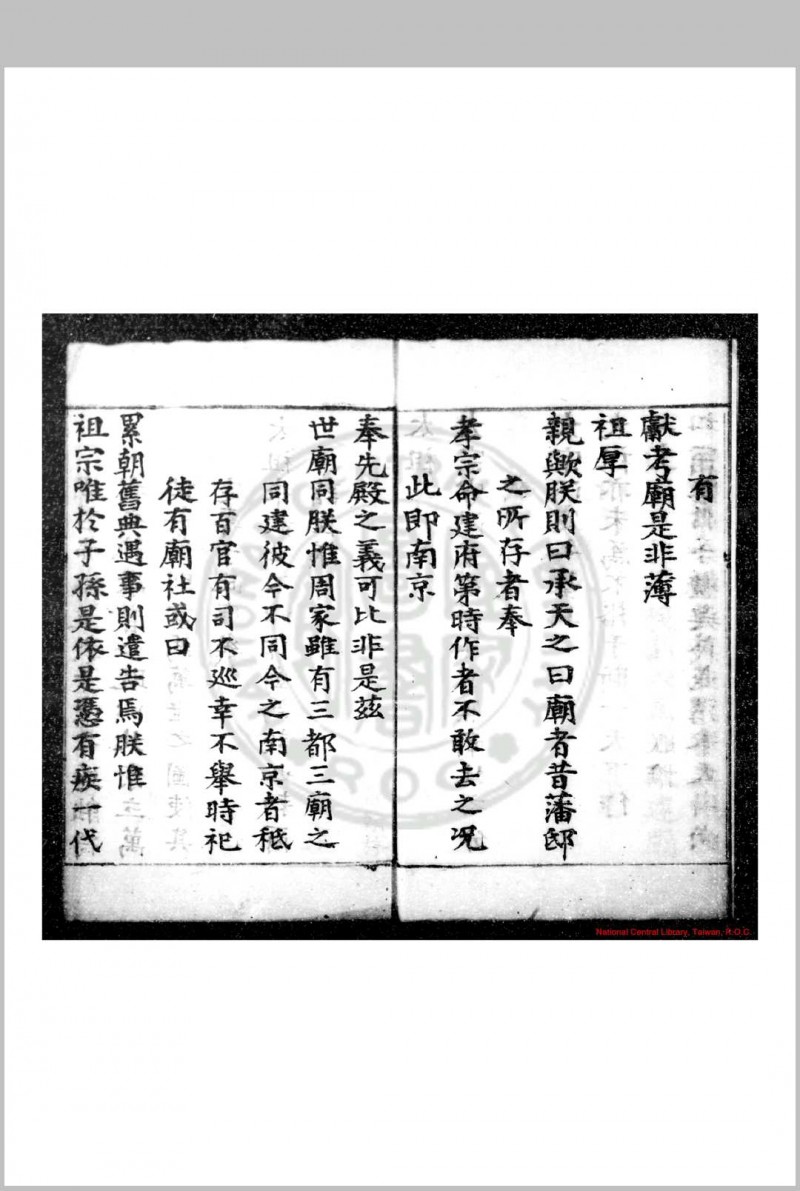 有
獻考廟是非薄
祖厚
親歟朕則曰承天之曰廟者昔藩邸
之所存者奉
孝宗命建府第時作者不敢去之況
此即南京
奉先殿之義可比非是茲
世廟同朕惟周家雖有三都三廟之
同建彼今不同今之南京者秪
存百官有司不巡幸不舉時祀
徒有廟社或曰
累朝舊典遇事則遣告焉朕惟
祖宗唯於子孫是依是憑有疾一代
National Central Library, Taiwan, R.O.C.